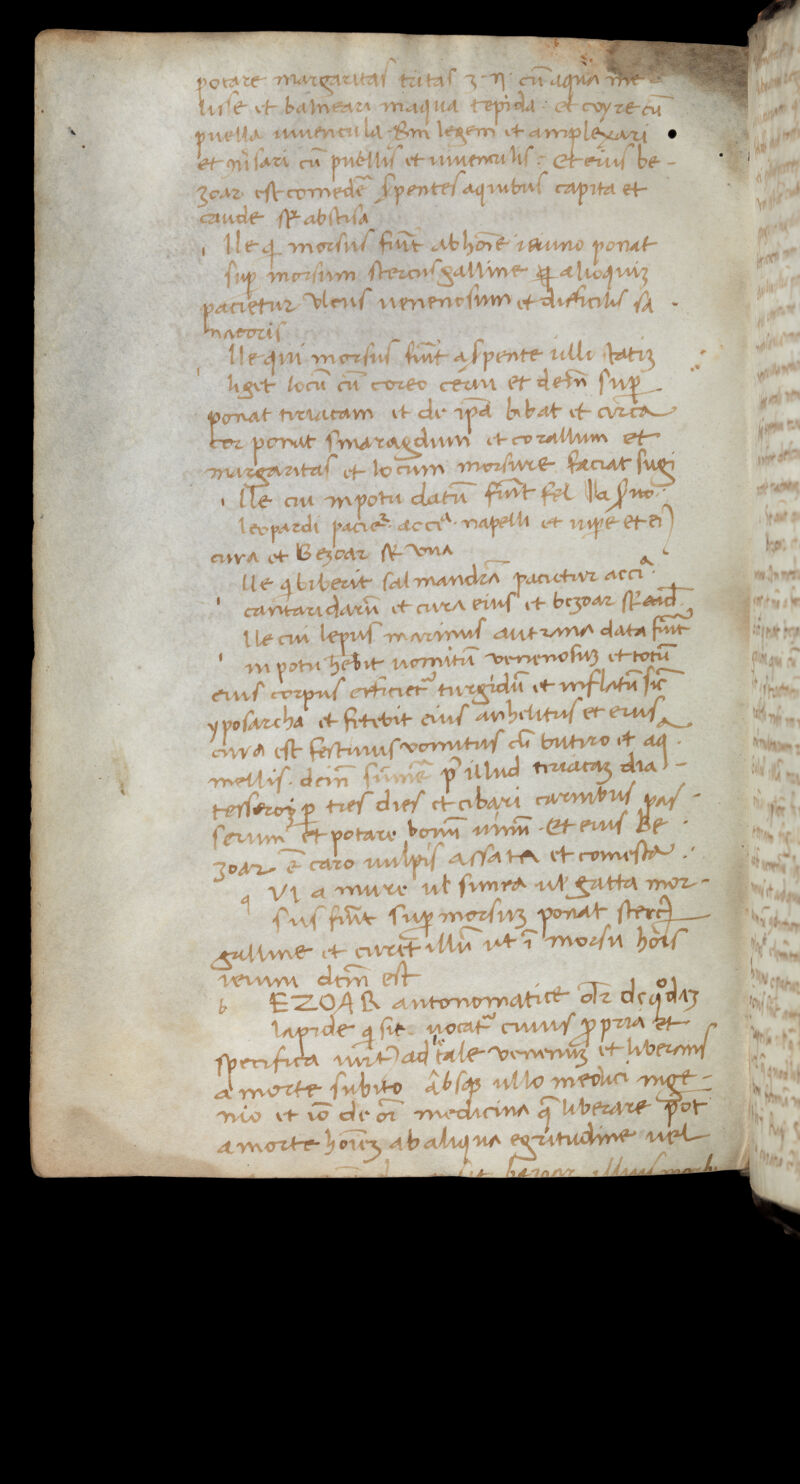 potare margaritas tritas ʒ · ij · cū aqua me
lisse et balneari in aqua tepida · et coyre cū
puella iuuencula · sm̄ legem et amplexari
et cū puellis et iuuenculis · Et eius be -
zoar est comedē spentes a quibus capita et
caude st̄ abscisa
Ille q̄ morsus fu͛it ab hoīe ieiuno ponat
sup̄ morsum stercus galline ꝗ alioquiȝ
pacietur vlcus uenenosum et difficilis sa -
nacōis
Ille qui morsus fu͛it a s͛pente illi statiȝ
liget locū cū coreo cerui et dein̄ sup̄
ponat tiriacam et de ip̄a bibat et circa
cor ponat smaragdum et corallum et
margaritas et locum morsure faciat sugi
Ille cui in potu datū fu͛it fel
leopardi paciet͛ accn̄a napelli et uip͛e et ei͛
cura et Bezoar st̄ vna
Ille q̄ biberit salmandra pacietur acci
cantaridarū et cura eius et bezoar st̄ eadē
Ille cui lepus marinus aut rana data fu͛it
in potu h̄ebit uomitū venenosuȝ et totū
eius corpus efficiet͛ turgidū et inflatū sic̄
yposarcha et fetebit eius anhelitus et eius
cura est festinus vomitus cū butiro et aq̄
mellis · dein̄ sumē p͛ illud tiriacaȝ dia -
tesseroȝ p̄ tres dies et cibari carnibus pas -
serum et potare bonū uinū · Et eius Be -
zoar ē caro uulpis assata et comesta ·
Qui a mure ul͛ simea ul͛ gatta mor -
sus fu͛it sup̄ morsuȝ ponat sterc͛
galline et curet illū ut ī morsu hoīs
ieiuni dc̄m est
BEZOAR antonomatice dr̄ de q̄daȝ
lapide q̄ sic uocat͛ cuius p̄pria et
specifica uirt͛ ad tale venenuȝ et liberans
a morte subito absq̄ ullo medici inge -
nio et iō de oī medicina q̄ liberare pōt
a morte hoīeȝ ab aliqua egritudine uel